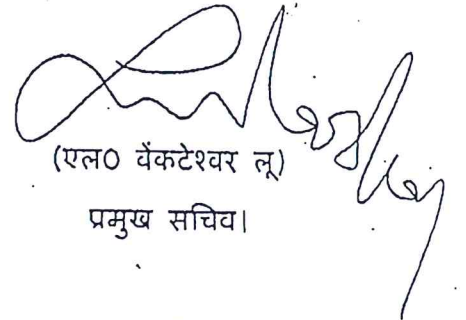 (एल० वेंकटेश्वर लू)
प्रमुख सचिव।